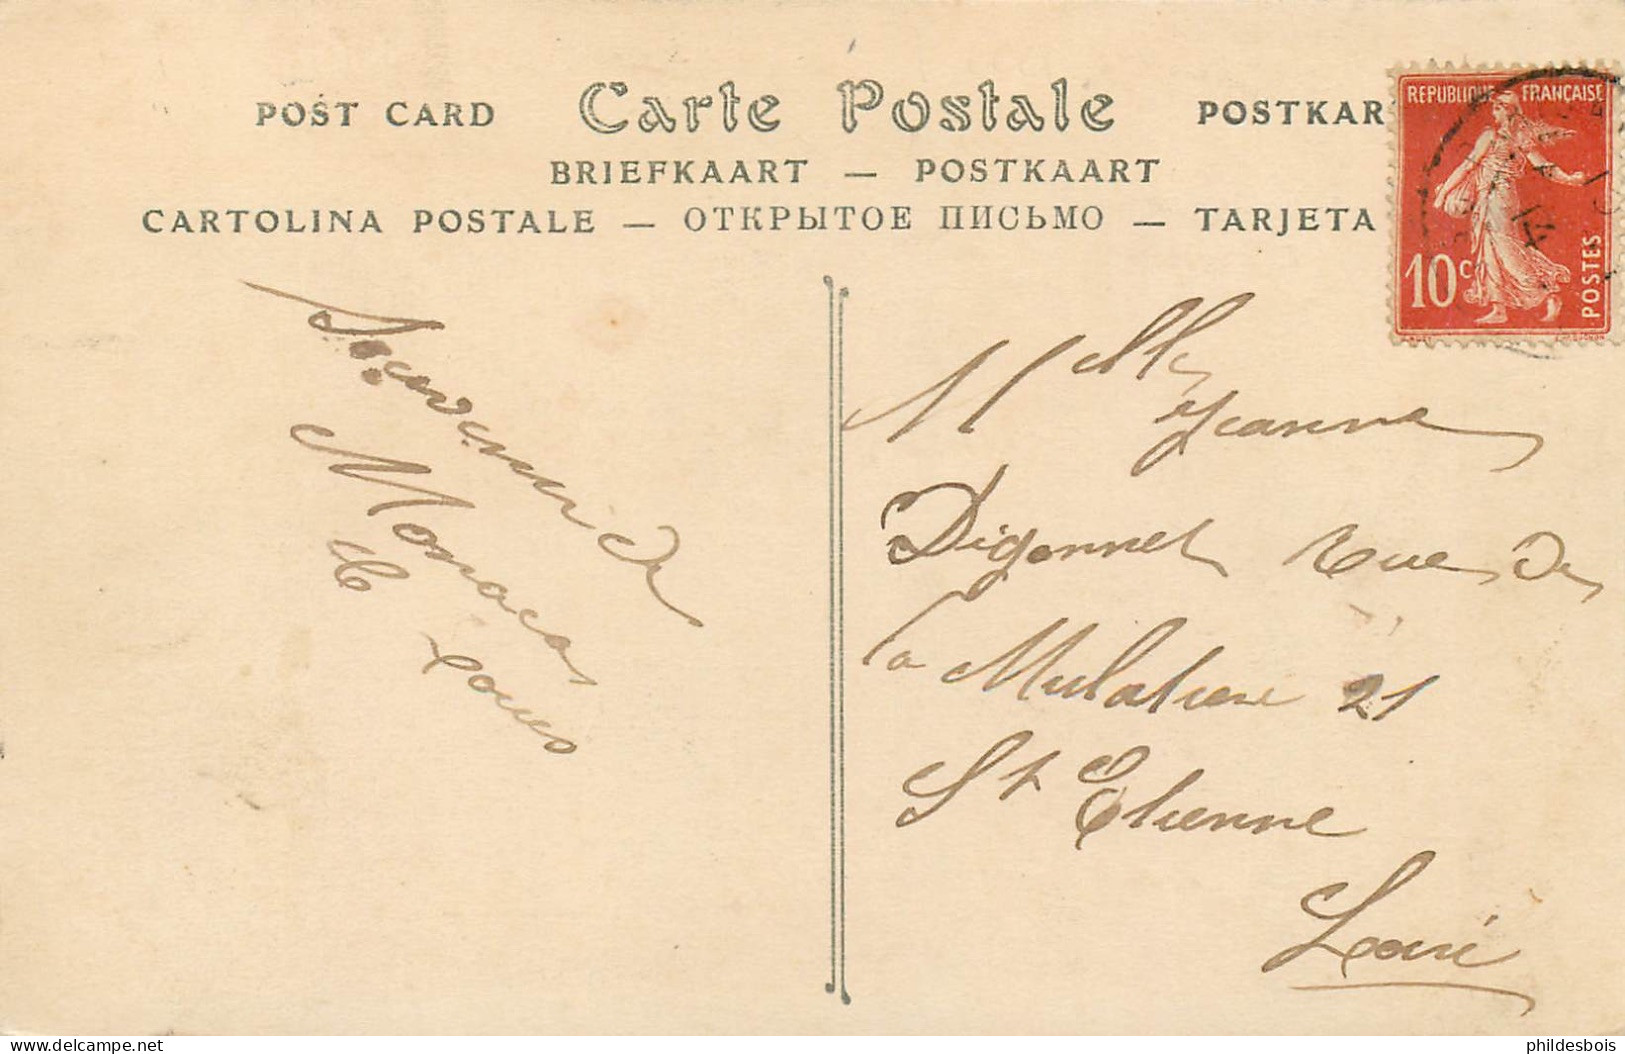 POST CARD Carte Postale POSTKAR
BRIEFKAART — POSTKAART
CARTOLINA POSTALE — ОТКРЫТОЕ ПИСЬМО — TARJETA
REPUBLIQUE FRANÇAISE
10c
POSTES
Souvenir de
Monaco
Mlle Jeanne
Digonnet rue de
la Mulatiere 21
St Etienne
Loire
delcampe.net
phildesbois